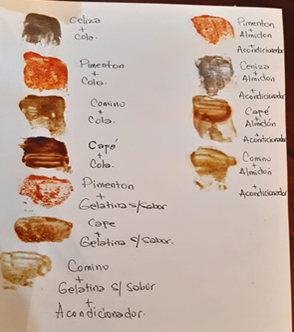 Ceniza
+
Cola.
Pimenton
+
Cola.
Comino
+
Cola.
Café
+
Cola.
Pimenton
+
Gelatina s/sabor
Cape
+
Gelatina s/sabor.
Comino
+
Gelatina s/ sabor
+
Acondicionador.
Pimenton
+
Almidon
+
Acondicionador
Ceniza
+
Almidon
+
Acondicionador
Café
+
Almidón
+
Acondicionador
Comino
+
Almidon
+
Acondicionador